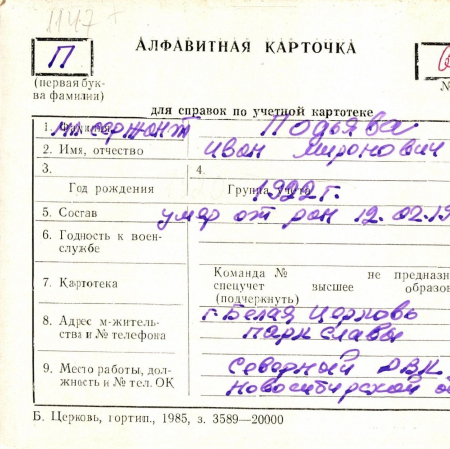 1147 +
П
АЛФАВИТНАЯ КАРТОЧКА
(первая бук-
ва фамилии)
№
для справок по учетной картотеке
1. Фамилия мл сержант Подьява
2. Имя, отчество Иван Миронович
3.
4.
Год рождения
Группа учета 1922 г.
5. Состав умер от ран 12.02.19
6. Годность к воен-
службе
7. Картотека
Команда № не предназн
спецучет высшее образов
(подчеркнуть)
8. Адрес м-житель-
ства и № телефона
г. Белая Церковь
парк Славы
9. Место работы, дол-
жность и № тел. ОК
Северный РВК
Новосибирской о
Б. Церковь, гортип., 1985, з. 3589—20000